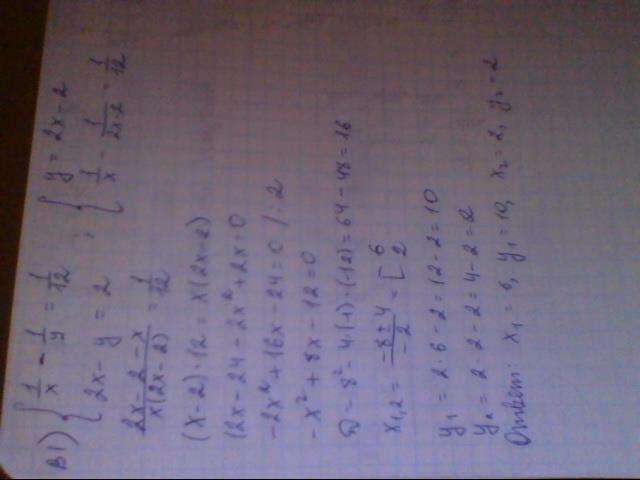 В1) { 1/x - 1/y = 1/12
2x - y = 2 ; { y = 2x - 2
1/x - 1/(2x-2) = 1/12
(2x - 2 - x)/(x(2x-2)) = 1/12
(x-2)·12 = x(2x-2)
12x - 24 - 2x² + 2x = 0
-2x² + 16x - 24 = 0 / : 2
-x² + 8x - 12 = 0
D = 8² - 4·(-1)·(-12) = 64 - 48 = 16
x1,2 = (-8 ± 4)/(-2) = [ 6
2
y1 = 2·6 - 2 = 12 - 2 = 10
y2 = 2·2 - 2 = 4 - 2 = 2
Ответ: x1 = 6, y1 = 10, x2 = 2, y2 = 2